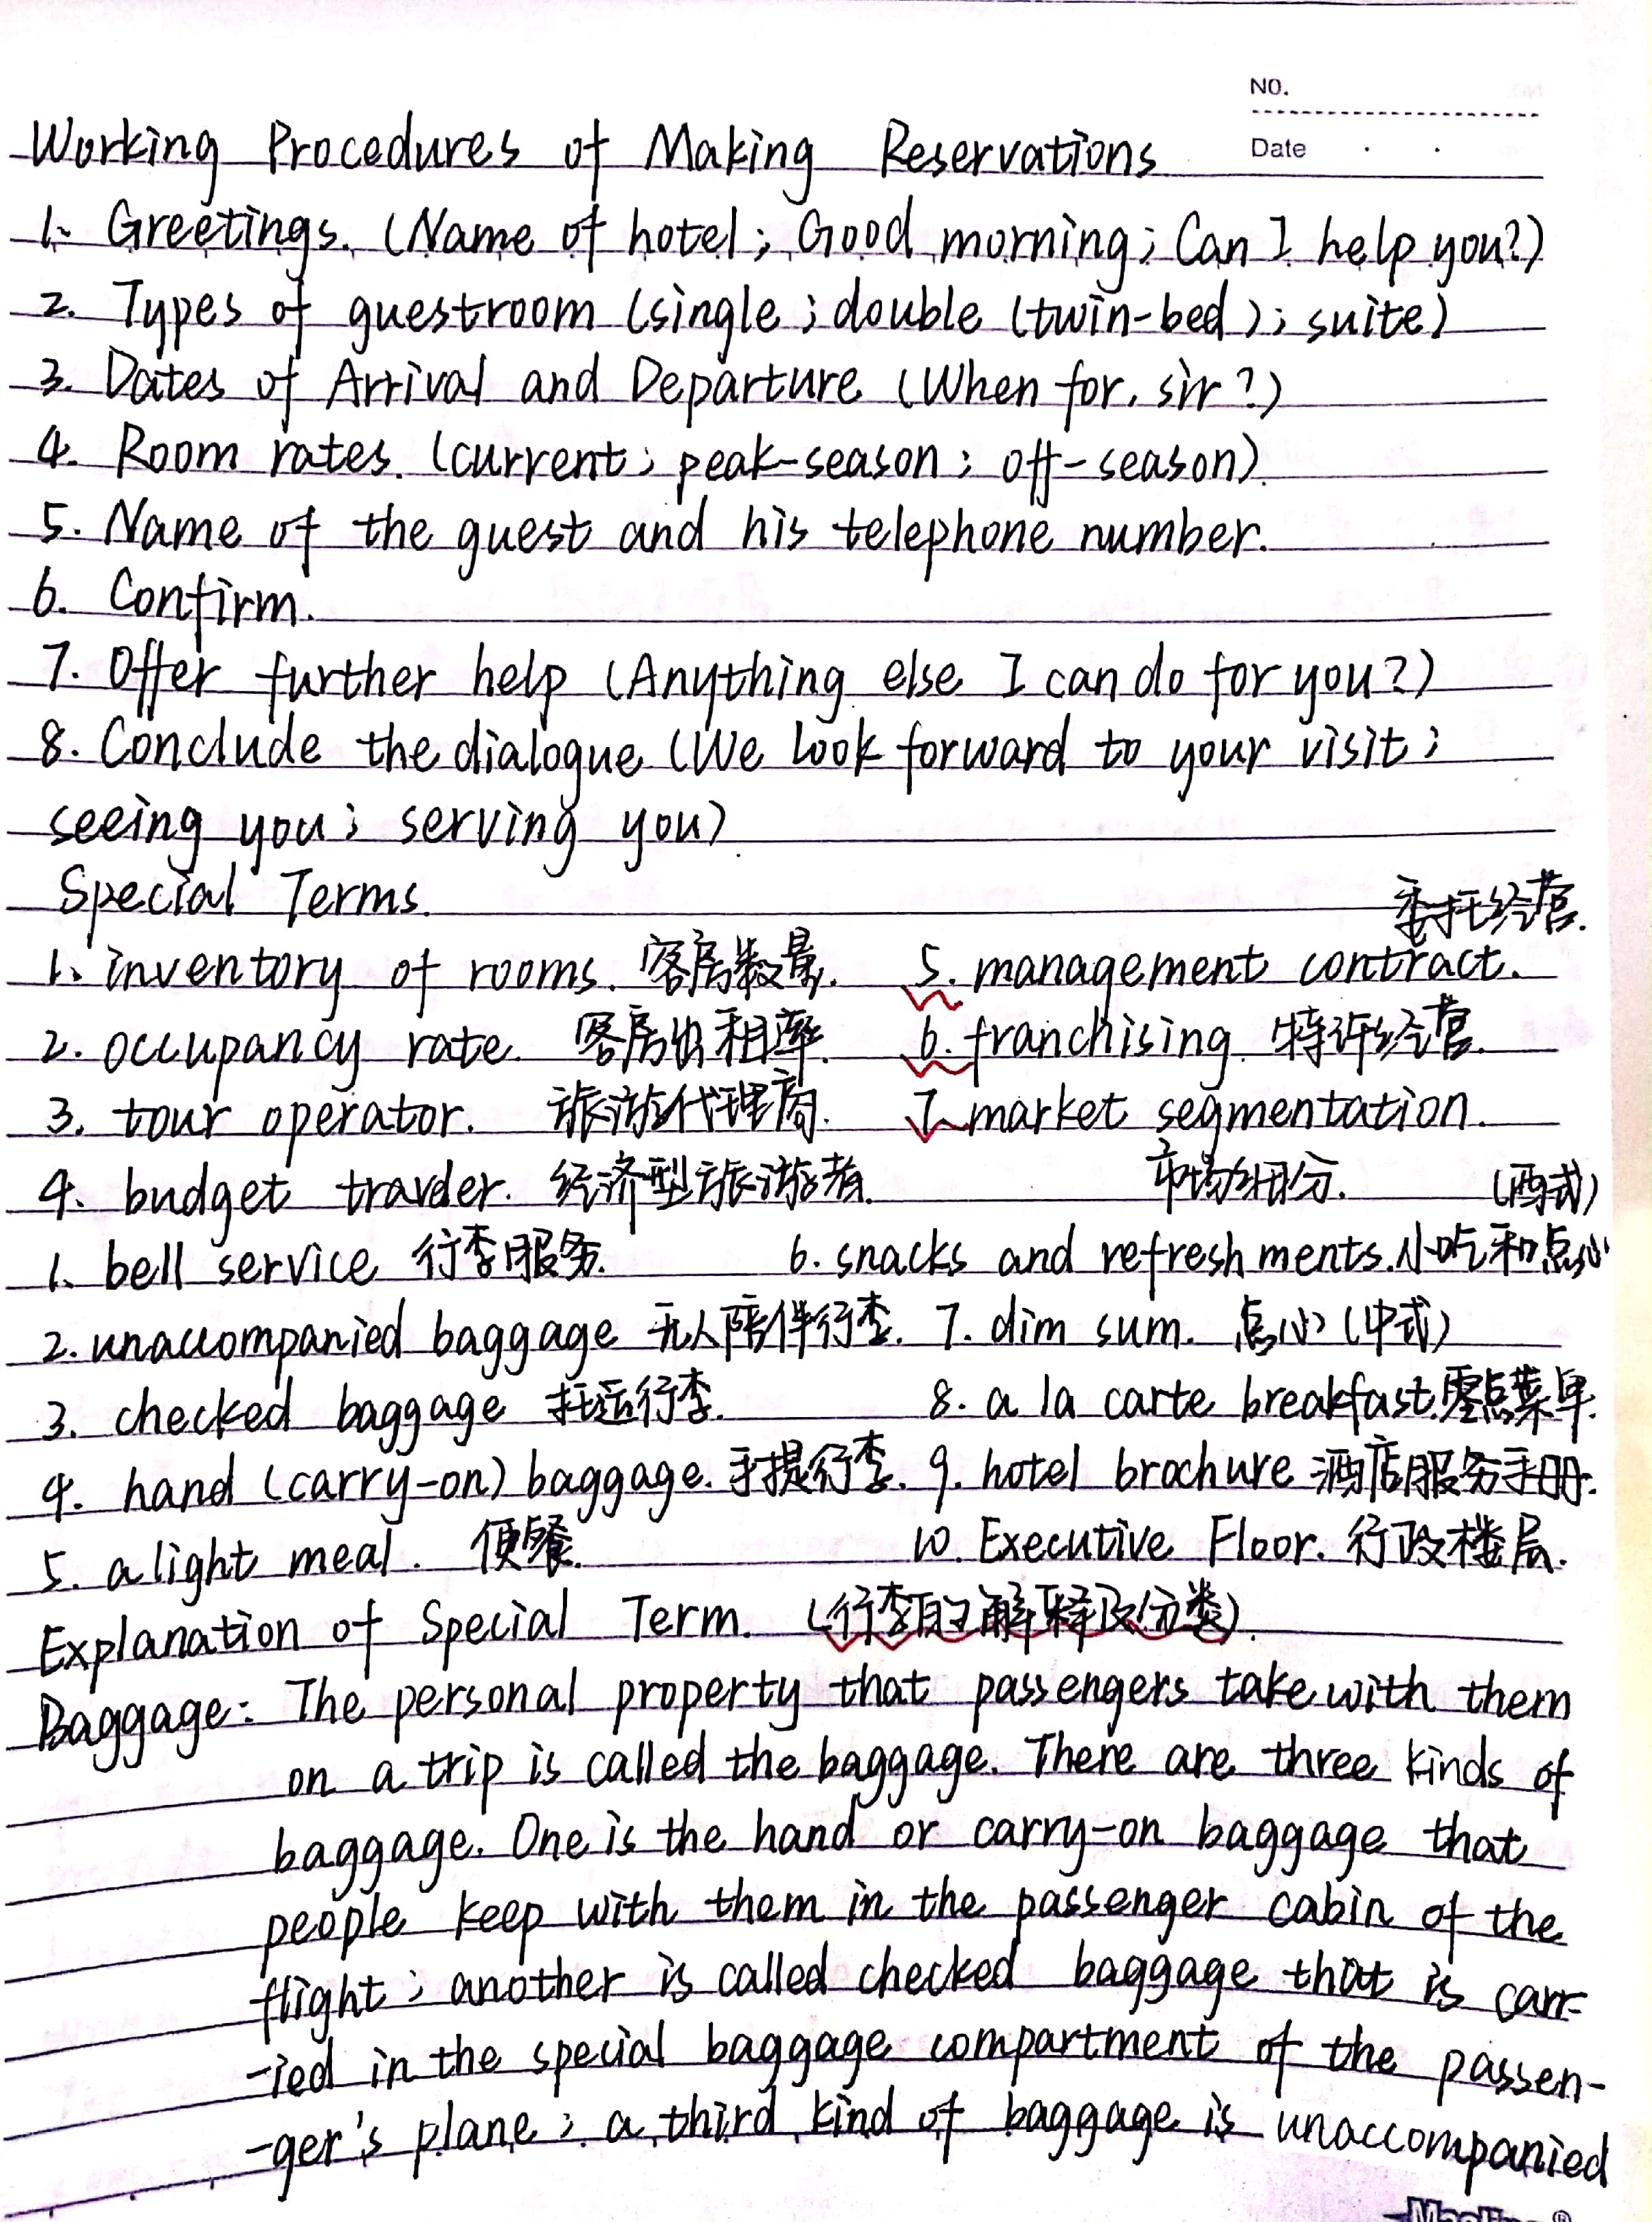 NO.
Date
Working Procedures of Making Reservations
1. Greetings. (Name of hotel; Good morning; Can I help you?)
2. Types of guestroom (single; double (twin-bed); suite)
3. Dates of Arrival and Departure (When for, sir?)
4. Room rates. (current; peak-season; off-season)
5. Name of the guest and his telephone number.
6. Confirm.
7. Offer further help (Anything else I can do for you?)
8. Conclude the dialogue (We look forward to your visit;
seeing you; serving you)
Special Terms.
委托经营.
1. inventory of rooms. 客房数量. 5. management contract.
2. occupancy rate. 客房出租率. 6. franchising. 特许经营.
3. tour operator. 旅游代理商. 7. market segmentation.
4. budget traveler. 经济型旅游者. 市场细分. (西式)
1. bell service 行李服务. 6. snacks and refreshments. 小吃和点心
2. unaccompanied baggage 无人陪伴行李. 7. dim sum. 点心 (中式)
3. checked baggage 托运行李. 8. a la carte breakfast. 零点菜单.
4. hand (carry-on) baggage. 手提行李. 9. hotel brochure 酒店服务手册.
5. a light meal. 便餐. 10. Executive Floor. 行政楼层.
Explanation of Special Term. (行李的解释及分类).
Baggage: The personal property that passengers take with them
on a trip is called the baggage. There are three kinds of
baggage. One is the hand or carry-on baggage that
people keep with them in the passenger cabin of the
flight; another is called checked baggage that is carr-
-ied in the special baggage compartment of the passen-
-ger's plane; a third kind of baggage is unaccompanied